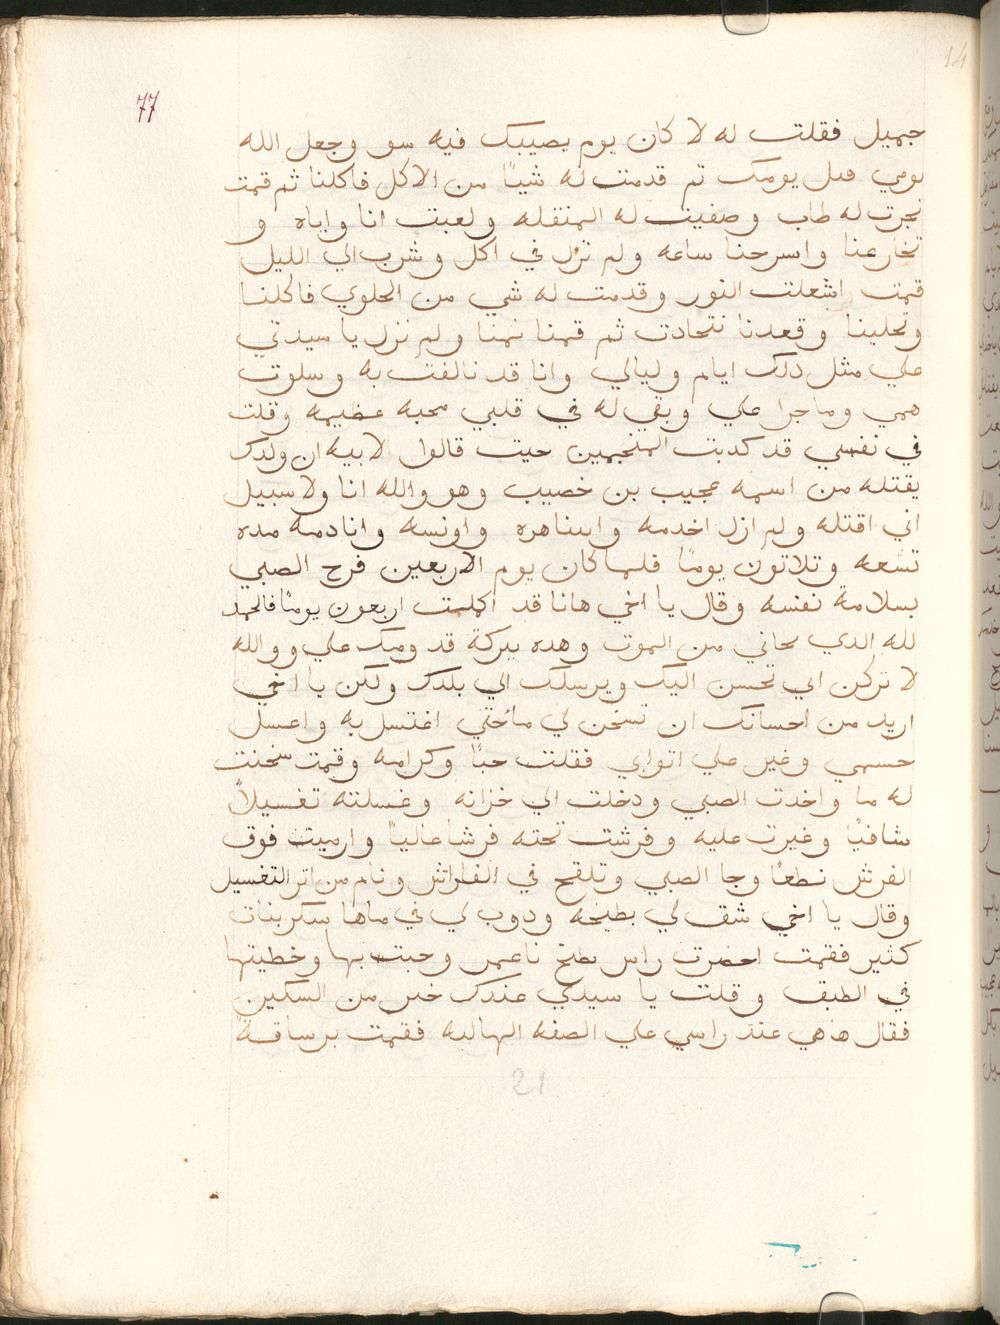 77
14
جميل فقلت له لا كان يوم يصيبك فيه سو وجعل الله
يومي قبل يومك تم قدمت له شياً من الاكل فاكلنا ثم قمت
نجرت له طاب وصفيت له المنقله ولعبت انا واياه و
تخارعنا واسرحنا ساعه ولم نزل في اكل وشرب الي الليل
قمت اشعلت النور وقدمت له شي من الحلوي فاكلنا
وتحلينا وقعدنا نتحادت ثم قمنا نمنا ولم نزل يا سيدتي
علي مثل دلك ايام وليالي وانا قد تالفت به وسلوت
همي وماجرا علي وبقي له في قلبي محبه عظيمه وقلت
في نفسي قد كدبت المنجمين حيت قالوا لابيه ان ولدك
يقتله من اسمه عجيب بن خصيب وهو والله انا ولا سبيل
اني اقتله ولم ازل اخدمه واساهره واونسه وانادمه مده
تسعه وتلاتون يوماً فلما كان يوم الاربعين فرح الصبي
بسلامة نفسه وقال يا اخي هانا قد اكلمت اربعون يوماً فالحمد
لله الدي نجاني من الموت وهده ببركة قدومك علي ووالله
لا تركن ابي يحسن اليك ويرسلك الي بلدك ولكن يا اخي
اريد من احسانك ان تسخن لي ما حتي اغتسل به واغسل
جسمي وغير علي اتوابي فقلت حباً وكرامه وقمت سخنت
له ما واخدت الصبي ودخلت الي خزانه وغسلته تغسيلاً
شافياً وغيرت عليه وفرشت تحته فرشا عالياً وارميت فوق
الفرش نطعاً وجا الصبي وتلقح في الفراش ونام من اتر التغسيل
وقال يا اخي شقف لي بطيخه ودوب لي في ماها سكر نبات
كثير فقمت احضرت راس بطيخ ناعمر وجبت بها وحطيتها
في الطبق وقلت يا سيدي عندك خبر من السكين
فقال ها هي عند راسي علي الصفه العاليه فقمت برساقةً
21